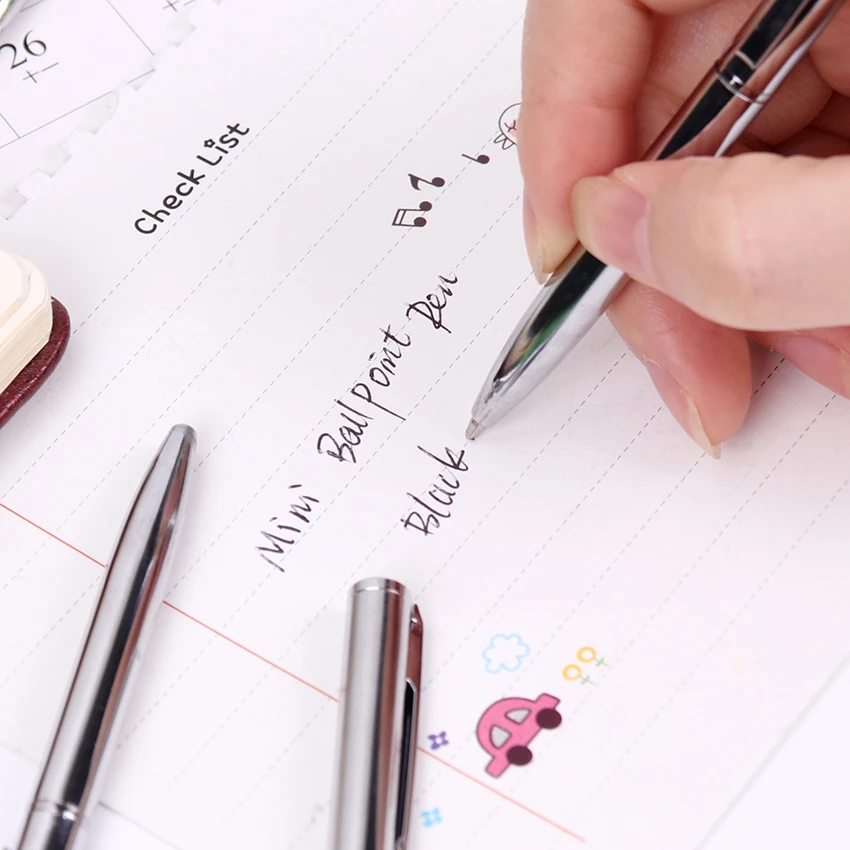 26
Check List
Mini Ballpoint Pen
Black